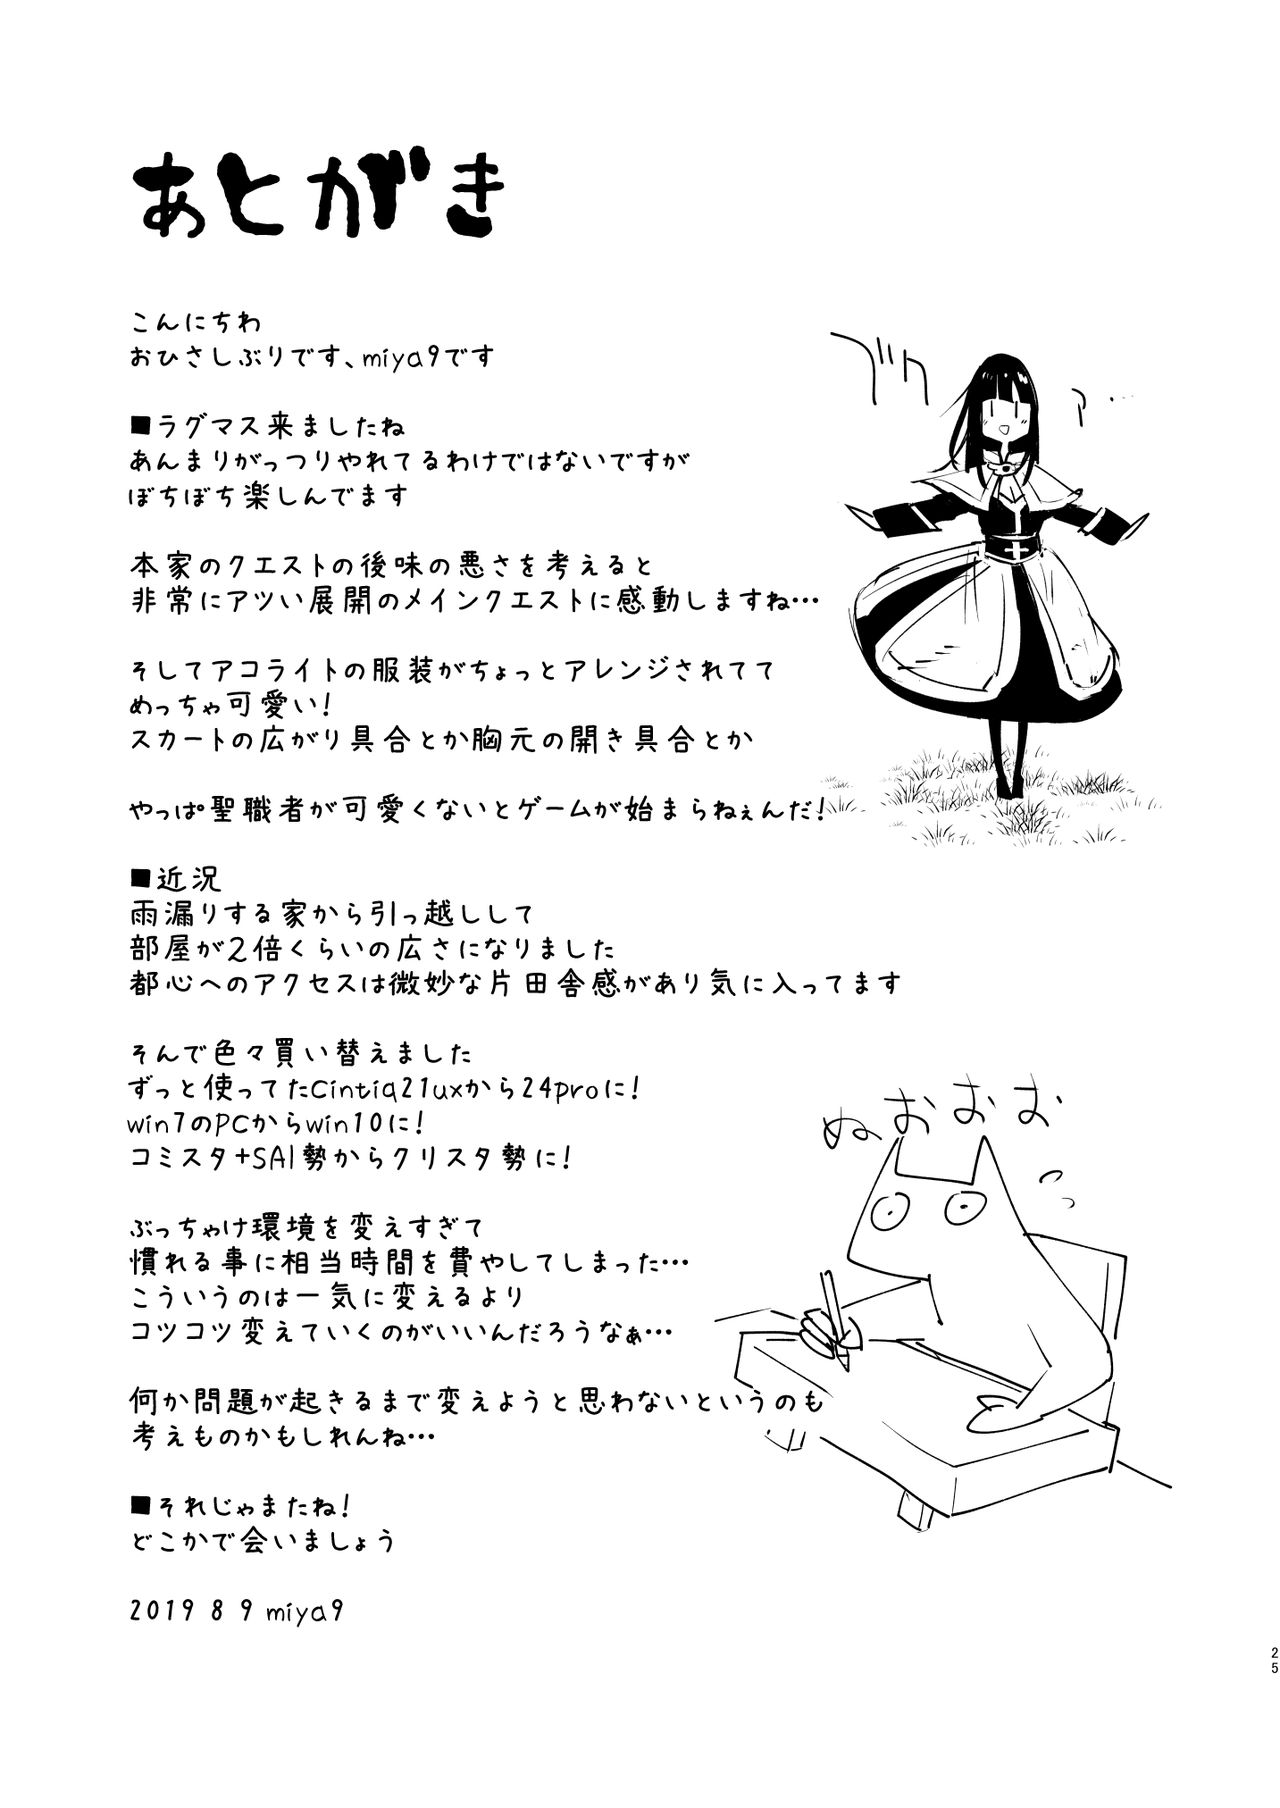 あとがき
こんにちわ
おひさしぶりです、miya9です
■ラグマス来ましたね
あんまりがっつりやれてるわけではないですが
ぼちぼち楽しんでます
本家のクエストの後味の悪さを考えると
非常にアツい展開のメインクエストに感動しますね…
そしてアコライトの服装がちょっとアレンジされてて
めっちゃ可愛い!
スカートの広がり具合とか胸元の開き具合とか
やっぱ聖職者が可愛くないとゲームが始まらねぇんだ!
■近況
雨漏りする家から引っ越しして
部屋が2倍くらいの広さになりました
都心へのアクセスは微妙な片田舎感があり気に入ってます
そんで色々買い替えました
ずっと使ってたCintiq21uxから24proに!
win7のPCからwin10に!
コミスタ+SAI勢からクリスタ勢に!
ぬおおお
ぶっちゃけ環境を変えすぎて
慣れる事に相当時間を費やしてしまった…
こういうのは一気に変えるより
コツコツ変えていくのがいいんだろうなぁ…
何か問題が起きるまで変えようと思わないというのも
考えものかもしれんね…
■それじゃまたね!
どこかで会いましょう
2019 8 9 miya9
25